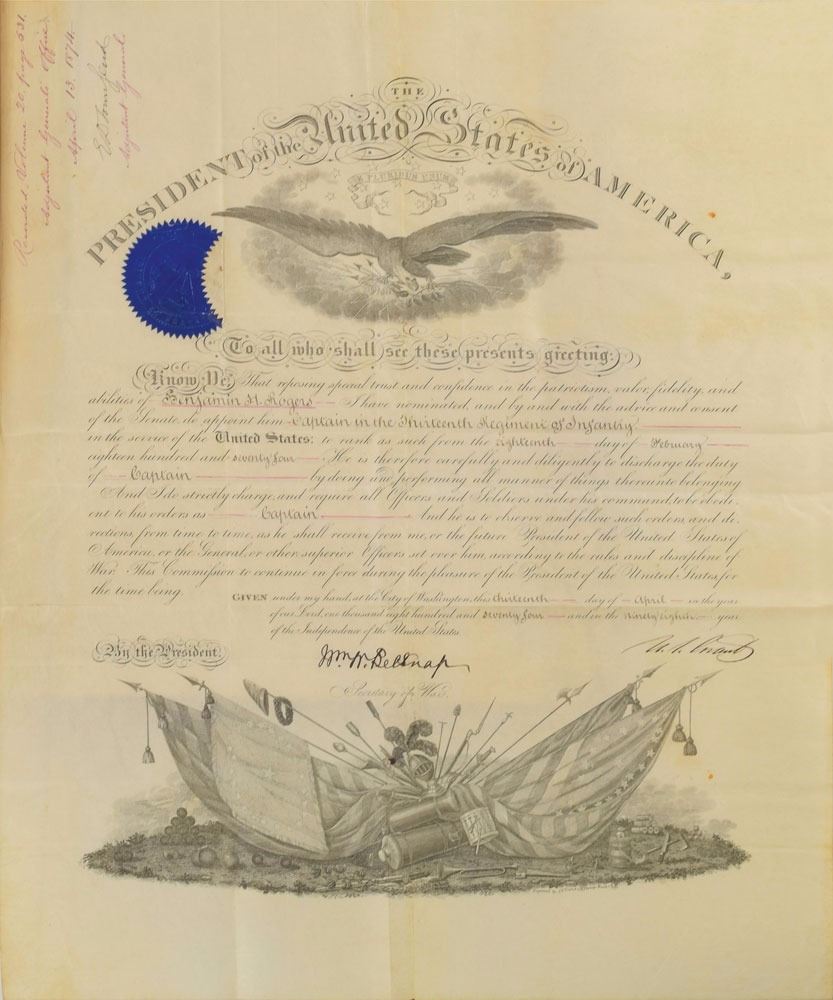 Recorded Volume 20, page 531.
Adjutant Generals Office
April 13. 1874.
E D Townsend
Adjutant General.
THE
PRESIDENT of the United States of AMERICA,
E PLURIBUS UNUM
To all who shall see these presents greeting:
Know Ye, That reposing special trust and confidence in the patriotism, valor, fidelity, and
abilities of Benjamin H. Rogers I have nominated, and by and with the advice and consent
of the Senate, do appoint him Captain in the Thirteenth Regiment of Infantry
in the service of the United States: to rank as such from the eighteenth day of February
eighteen hundred and seventy four. He is therefore carefully and diligently to discharge the duty
of Captain by doing and performing all manner of things thereunto belonging
And I do strictly charge, and require all Officers and Soldiers under his command, to be obedi-
ent to his orders as Captain. And he is to observe and follow such orders, and di-
rections from time to time, as he shall receive from me, or the future President of the United States of
America, or the General, or other superior Officers set over him, according to the rules and discipline of
War. This Commission to continue in force during the pleasure of the President of the United States, for
the time being.
GIVEN under my hand, at the City of Washington, this thirteenth day of April in the year
of our Lord, one thousand eight hundred and seventy four and in the ninety eighth year
of the Independence of the United States
By the President.
Wm W. Belknap
U. S. Grant
Secretary of War.